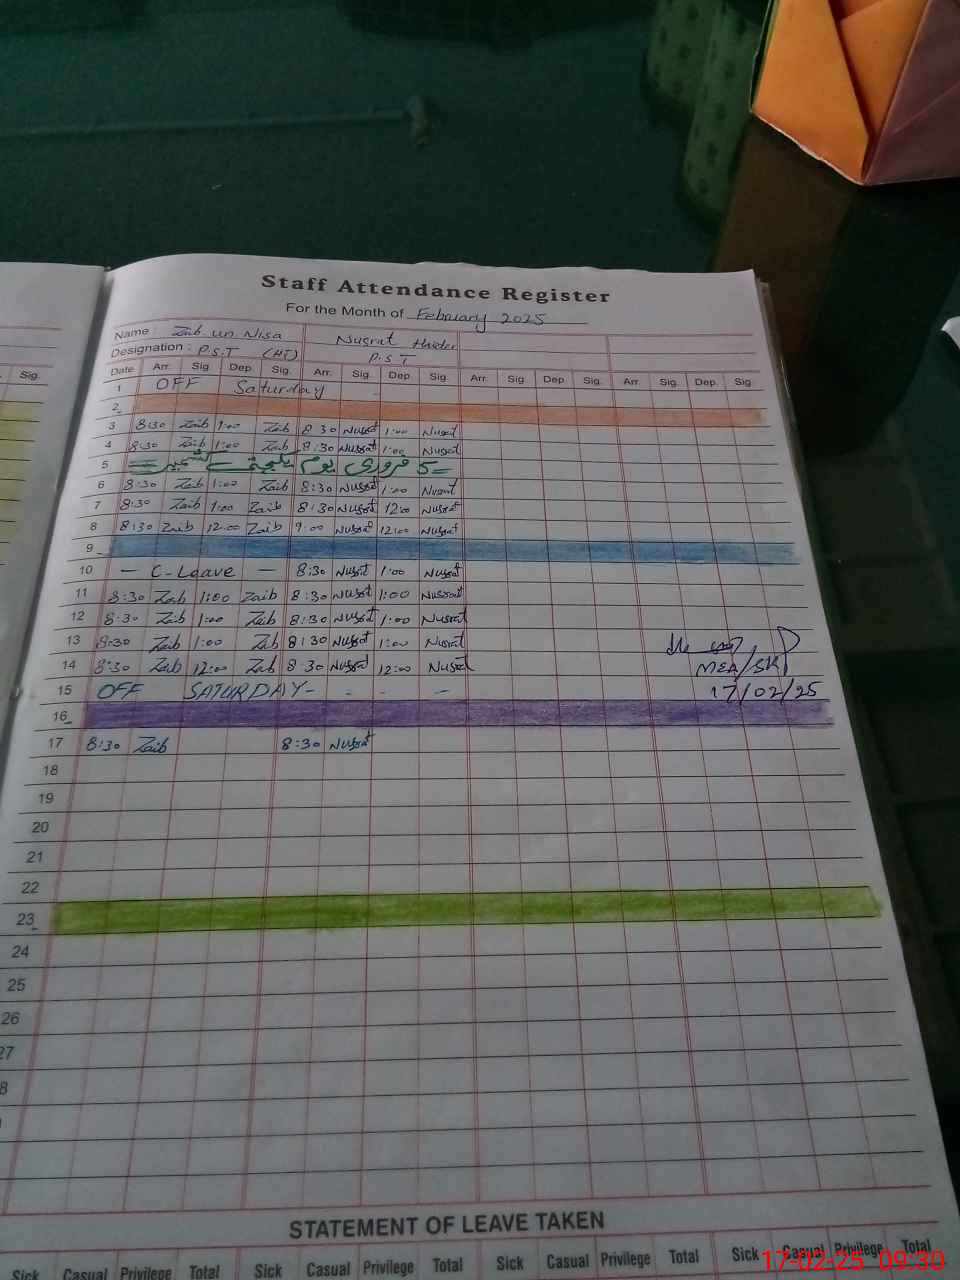 Staff Attendance Register
For the Month of February 2025
Name : Zaib un Nisa Nusrat Haider
Designation : P.S.T (HT) P.S.T
Sig. Date Arr. Sig. Dep. Sig. Arr. Sig. Dep. Sig. Arr. Sig. Dep. Sig. Arr. Sig. Dep. Sig.
1 OFF Saturday
2
3 8:30 Zaib 1:00 Zaib 8:30 Nusrat 1:00 Nusrat
4 8:30 Zaib 1:00 Zaib 8:30 Nusrat 1:00 Nusrat
5 5 فروری یوم یکجہتی کشمیر
6 8:30 Zaib 1:00 Zaib 8:30 Nusrat 1:00 Nusrat
7 8:30 Zaib 1:00 Zaib 8:30 Nusrat 12:00 Nusrat
8 8:30 Zaib 12:00 Zaib 9:00 Nusrat 12:00 Nusrat
9
10 — C-Leave — 8:30 Nusrat 1:00 Nusrat
11 8:30 Zaib 1:00 Zaib 8:30 Nusrat 1:00 Nusrat
12 8:30 Zaib 1:00 Zaib 8:30 Nusrat 1:00 Nusrat
13 8:30 Zaib 1:00 Zaib 8:30 Nusrat 1:00 Nusrat
14 8:30 Zaib 12:00 Zaib 8:30 Nusrat 12:00 Nusrat MEA/SKP
15 OFF SATURDAY - - - - 17/02/25
16
17 8:30 Zaib 8:30 Nusrat
18
19
20
21
22
23
24
25
26
27
8
STATEMENT OF LEAVE TAKEN
Sick Casual Privilege Total Sick Casual Privilege Total Sick Casual Privilege Total Sick Casual Privilege Total
17-02-25 09:30